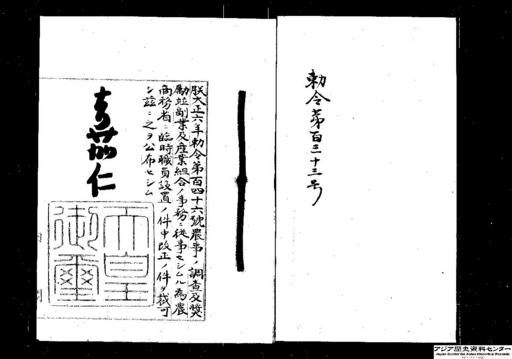 勅令第百三十三号
朕大正六年勅令第百四十六號農事ノ調査及奬
勵竝副業及産業組合ノ事務ニ従事セシムル為農
商務省ニ臨時職員設置ノ件中改正ノ件ヲ裁可
シ茲ニ之ヲ公布セシム
嘉仁
天皇
御璽
アジア歴史資料センター
Japan Center for Asian Historical Records